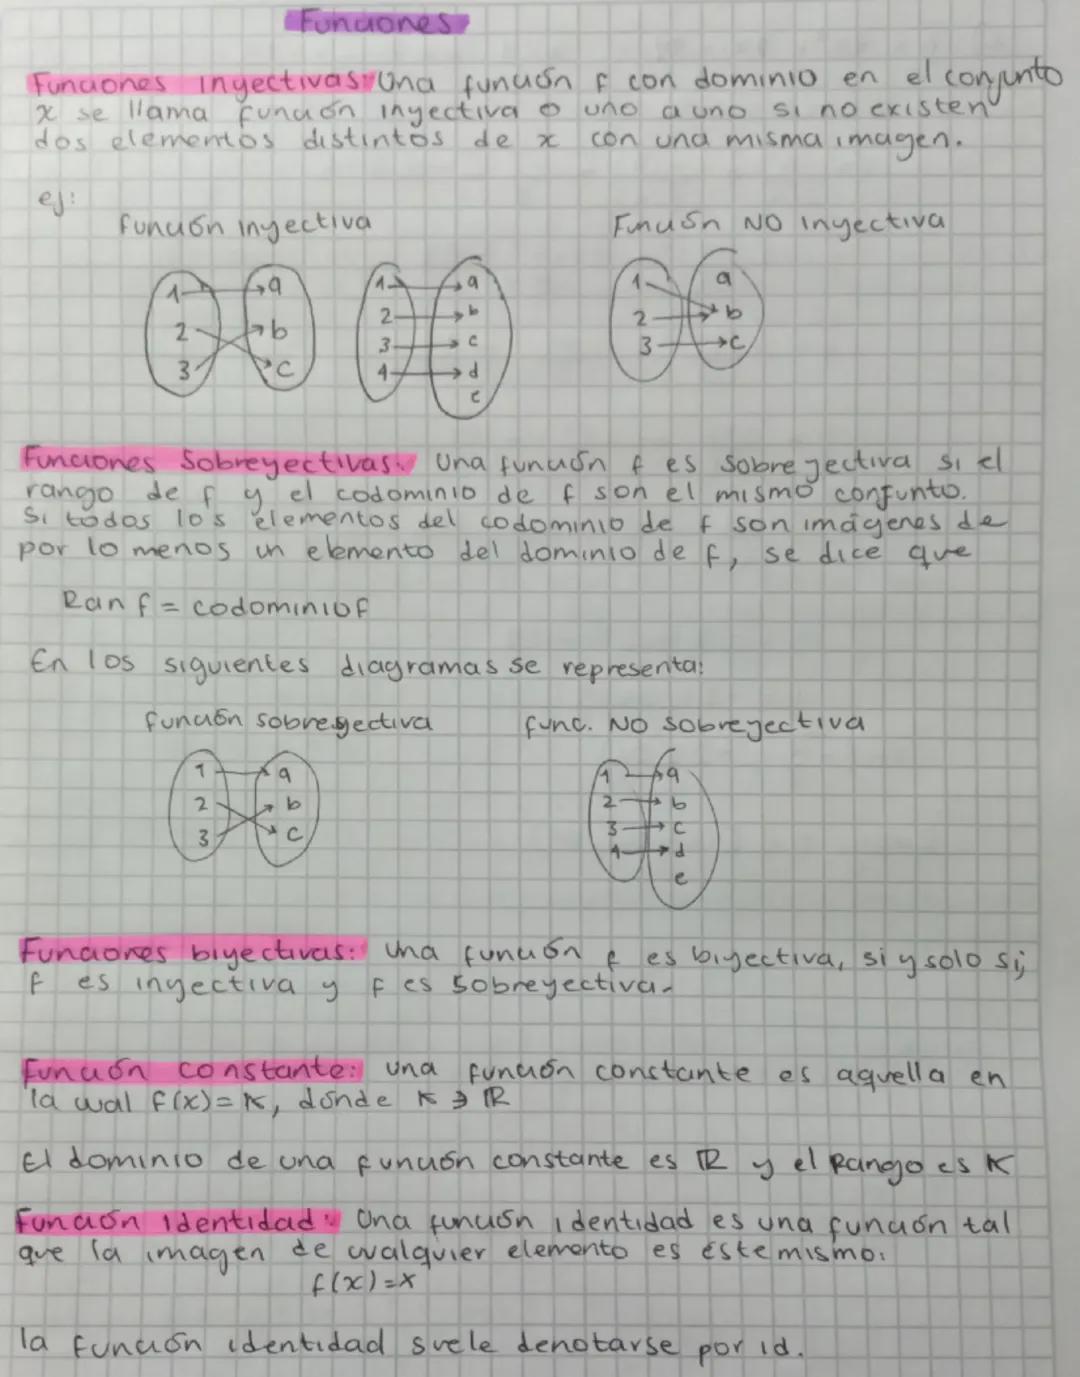 Funciones
Funciones inyectivas: Una función f con dominio en el conjunto
x se llama función inyectiva o uno a uno si no existen
dos elementos distintos de x con una misma imagen.
ej:
función inyectiva
Función NO inyectiva
1 a
2 b
3 c
1 a
2 b
3 c
4 d
e
1 a
2 b
3 c
Funciones Sobreyectivas: Una función f es sobreyectiva si el
rango de f y el codominio de f son el mismo conjunto.
Si todos los elementos del codominio de f son imágenes de
por lo menos un elemento del dominio de f, se dice que
Ran f = codominio f
En los siguientes diagramas se representa:
función sobreyectiva
func. NO sobreyectiva
1 a
2 b
3 c
1 a
2 b
3 c
4 d
e
Funciones biyectivas: Una función f es biyectiva, si y solo si;
f es inyectiva y f es sobreyectiva.
Función constante: una función constante es aquella en
la cual f(x)=K, donde K ∋ ℝ
El dominio de una función constante es ℝ y el Rango es K
Función identidad: Una función identidad es una función tal
que la imagen de cualquier elemento es éste mismo:
f(x)=x
la función identidad suele denotarse por id.